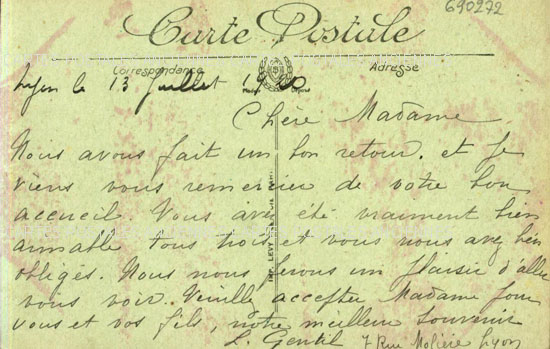 690272
Carte Postale
Correspondance
Adresse
Lyon le 13 Juillet 1920
Chère Madame
Nous avons fait un bon retour. et je
viens vous remercier de votre bon
accueil. Vous avez été vraiment bien
aimable tous trois et vous nous avez bien
obligés. Nous nous ferons un plaisir d'aller
vous voir. Veuillez accepter Madame pour
vous et vos fils, notre meilleur souvenir
L. Gentil 7 Rue Molière Lyon
IMP. LEVY